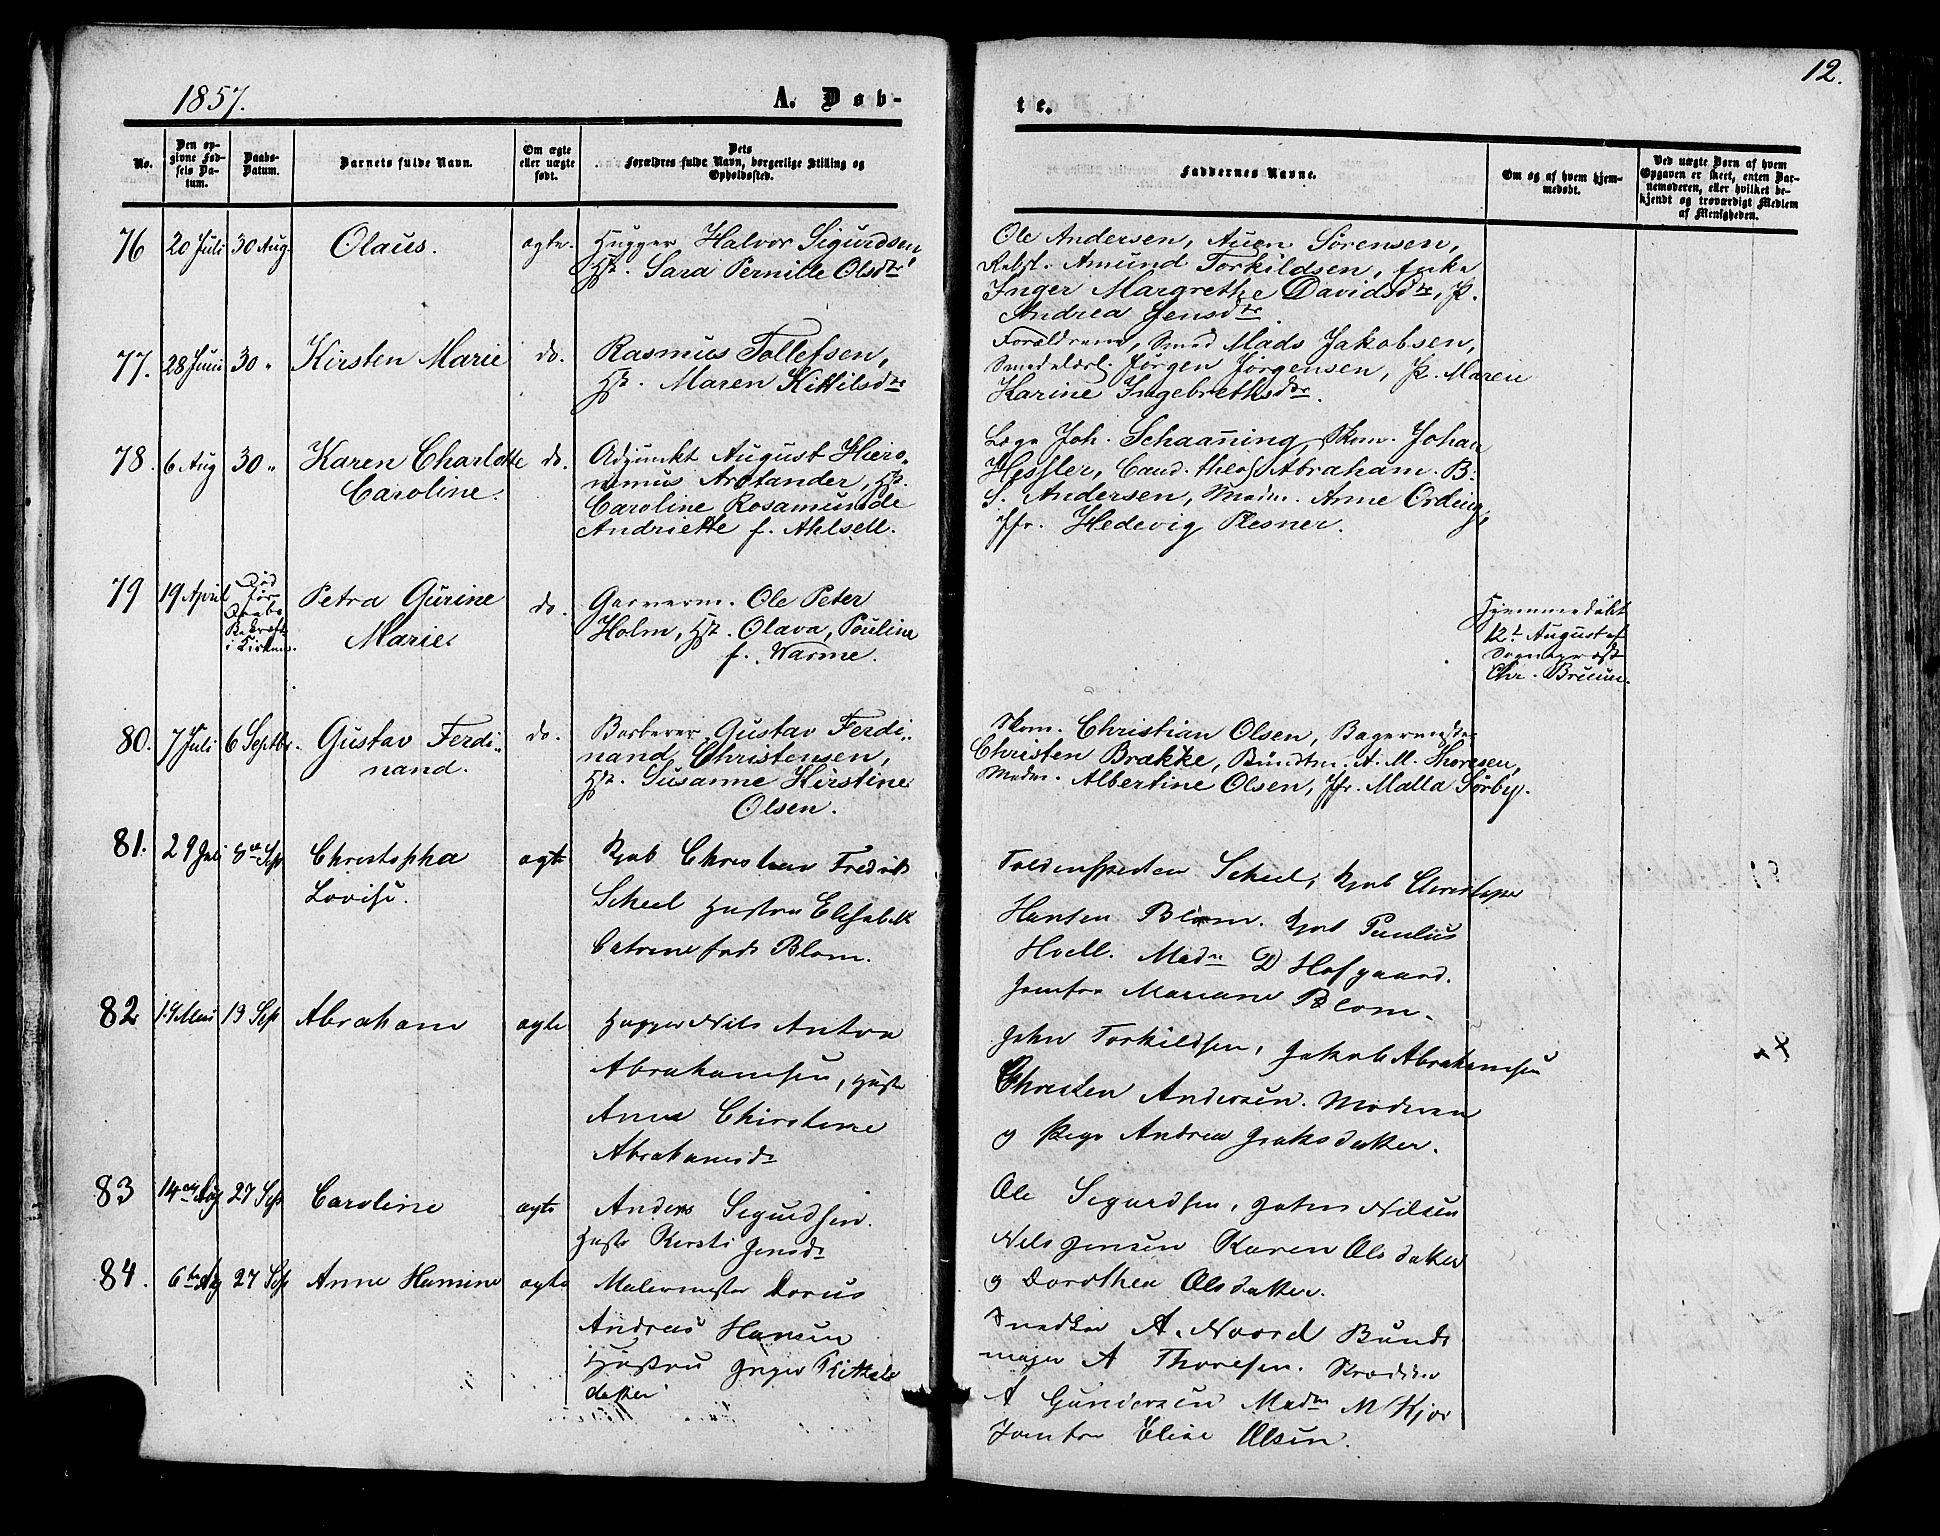 1857.
A. Døb-
te.
12.
No.
Den op-
givne Fød-
sels Da-
tum.
Daabs-
Datum.
Barnets fulde Navn.
Om ægte
eller uægte
født.
Dets
Forældres fulde Navn, borgerlige Stilling og
Opholdssted.
Faddernes Navne.
Om og af hvem hjem-
medøbt.
Ved uægte Børn af hvem
Opgaven er skeet, enten Bar-
nemoderen, eller hvilket be-
kjendt og troværdigt Medlem
af Menigheden.
76 20 Juli 30 Aug. Olaus. ægte.
Hugger Halvor Sigurdsen,
Hst. Sara Pernille Olsdtr
Ole Andersen, Auen Sörensen,
Amund Torkildsen, Enke
Inger Margrethe Davidsdtr, P.
Andrea Jensdtr.
77. 28 Juni 30 " Kirsten Marie do.
Rasmus Tollefsen,
Hst. Maren Kittilsdtr
Forældrene, Smed Mads Jakobsen,
Smedelærl. Jørgen Jørgensen, P. Maren
Karine Ingebrethsdtr.
78. 6 Aug 30 " Karen Charlotte do.
Caroline.
Adjunkt August Hiero-
nimus Arctander, Hst.
Caroline Rosamunde
Andriette f. Ahlsell.
Læge Joh. Schaanning, Skom. Johan
Hessler, Cand. theol Abraham B.
S. Andersen, Madm. Anne Ording,
Jfr. Hedevig Plesner.
79 19 April Død
før
Daabs
Bekræft.
i Kirken.
Petra Gurine
Marie.
do.
Garverm. Ole Peter
Holm, Hst. Olava, Pauline
f. Warme.
Hjemmedøbt
12t August af
Sognepræst
Chr. Bruun.
80. 7 Juli 6 Septbr. Gustav Ferdi-
nand.
do.
Barberer Gustav Ferdi-
nand Christensen,
Hst. Susanne Kirstine
Olsen.
Skom. Christian Olsen, Bagermester
Christen Brække, Bundtm. A. M. Thoresen,
Madm. Albertine Olsen, Jfr. Malla Sørby.
81. 29 Juli 8de Sep Christopha
Lovise.
ægte
Kjøb Christian Fredrik
Scheel Hustru Elisabeth
Catrine født Blom.
Scheel, Kjøb Christopher
Hansen Blom. Kjøb Paulus
Hoell. Madm D Hofgaard.
Jomfru Mariane Blom.
82 13 Sep Abraham ægte
Hugger Nils Anton
Abrahamsen, Hustr
Anne Christine
Abrahamsdr
John Torkildsen, Jakob Abrahamsen
Christen Andersen. Moderen
og Pige Andrea Jsaksdatter.
83 14de Aug 27 Sep Caroline ægte
Anders Sigurdsen.
Hustr Kersti Jensdr
Ole Sigurdsen, Johan Nilsen
Nils Jensen Karen Olsdatter
og Dorothea Olsdatter.
84. 6te Aug 27 Sep Anne Hamine ægte
Malermester Dorus
Andreas Hansen
Hustru Inger Kittels
datter
Snedker A. Noord Bundt
mager A Thoresen. Skrædder
A Gundersen Madm M Kjær
Jomfru Elise Olsen.